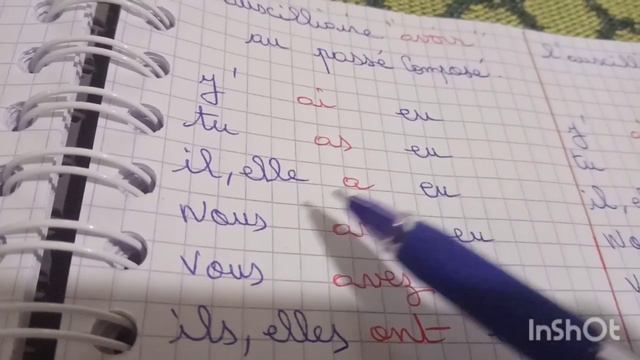 auxilliaire "avoir"
au passé Composé.
j' ai eu
tu as eu
il, elle a eu
Nous eu
Vous avez
ils, elles ont
l'auxill
j'
tu
il, e
No
V
InShOt